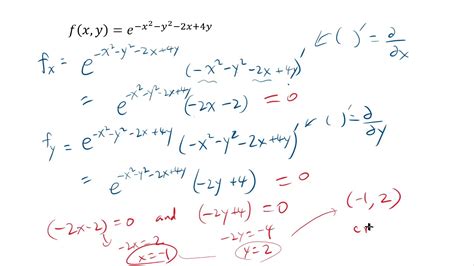 f(x, y) = e^{-x²-y²-2x+4y}
f_x = e^{-x²-y²-2x+4y} (-x²-y²-2x+4y)' ( )' = ∂/∂x
= e^{-x²-y²-2x+4y} (-2x-2) = 0
f_y = e^{-x²-y²-2x+4y} (-x²-y²-2x+4y)' ( )' = ∂/∂y
= e^{-x²-y²-2x+4y} (-2y+4) = 0
(-2x-2)=0 and (-2y+4)=0 (-1, 2)
-2x=2 -2y=-4
x=-1 y=2